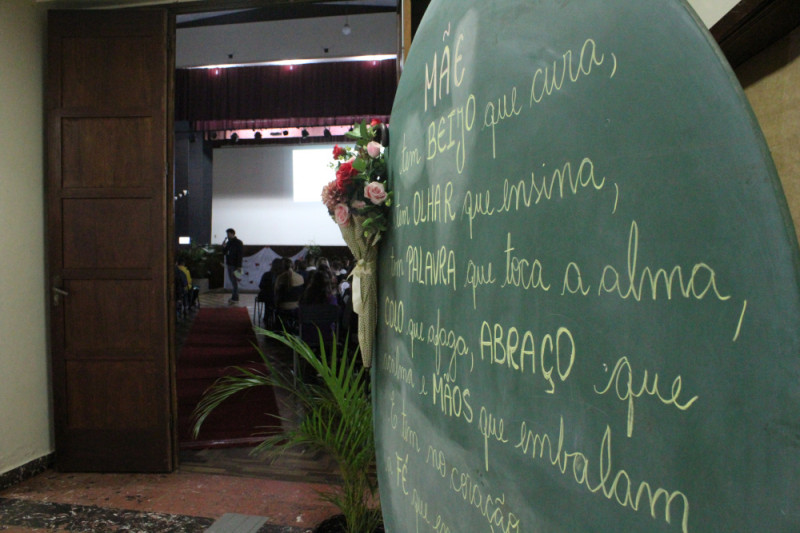 MÃE
tem BEIJO que cura,
tem OLHAR que ensina,
tem PALAVRA que toca a alma,
COLO que afaga, ABRAÇO que
acalma e MÃOS que embalam
E tem no coração
FÉ que